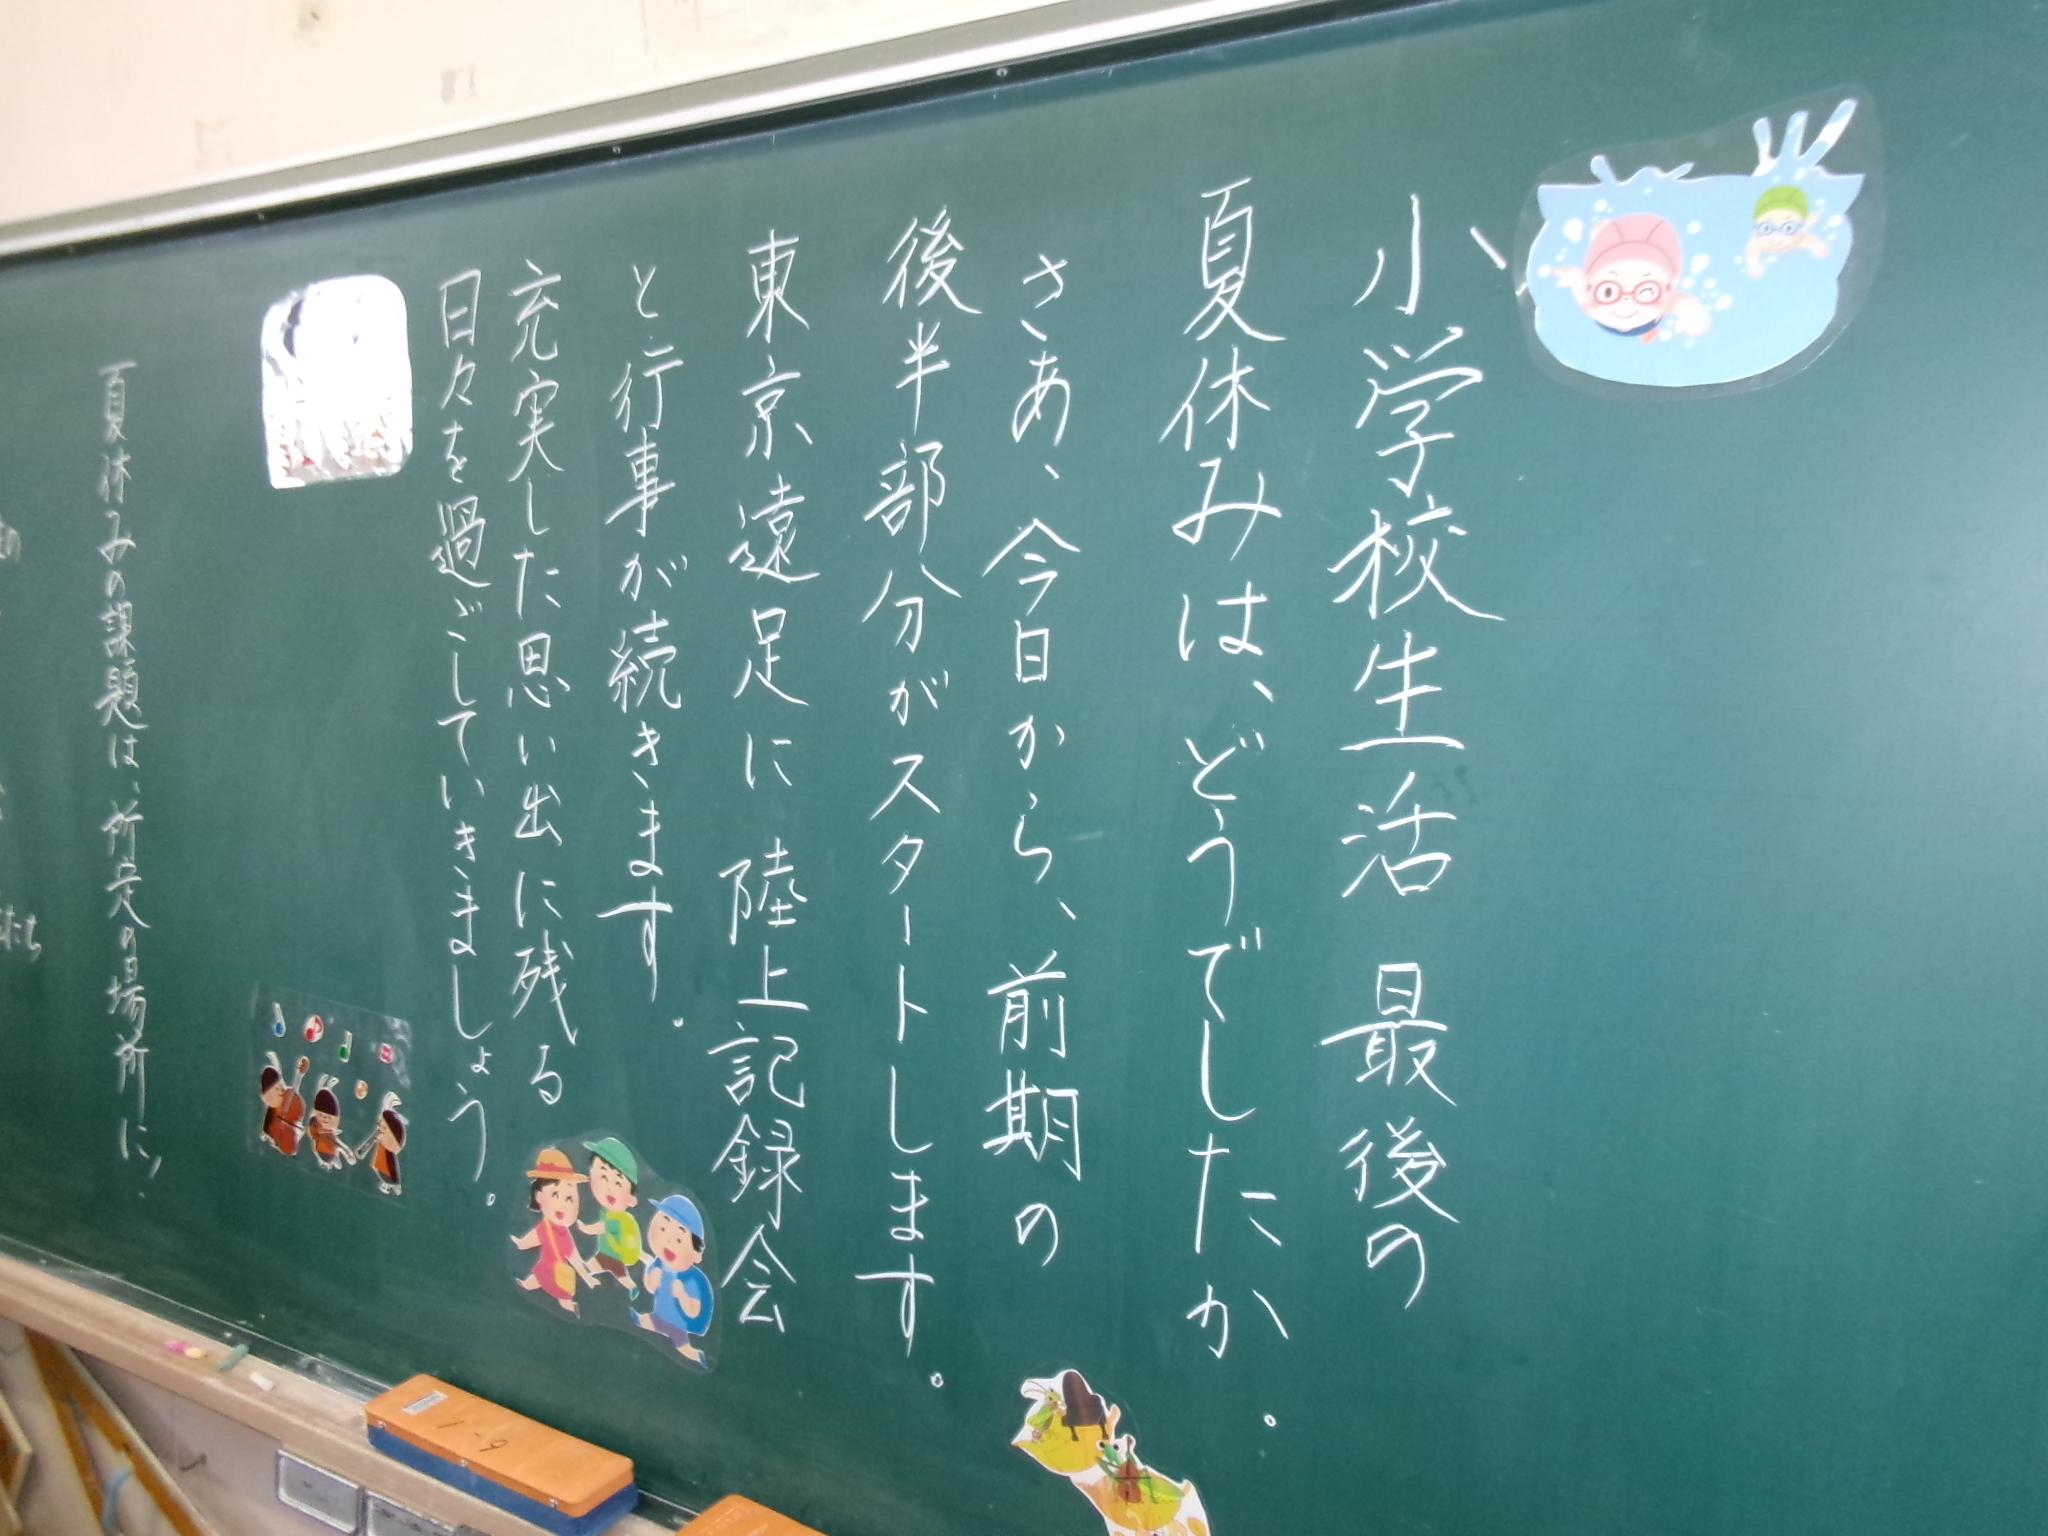 小学校生活 最後の
夏休みは、どうでしたか。
さあ、今日から、前期の
後半部分がスタートします。
東京遠足に 陸上記録会
と行事が続きます。
充実した思い出に残る
日々を過ごしていきましょう。
夏休みの課題は、所定の場所に、
1-9